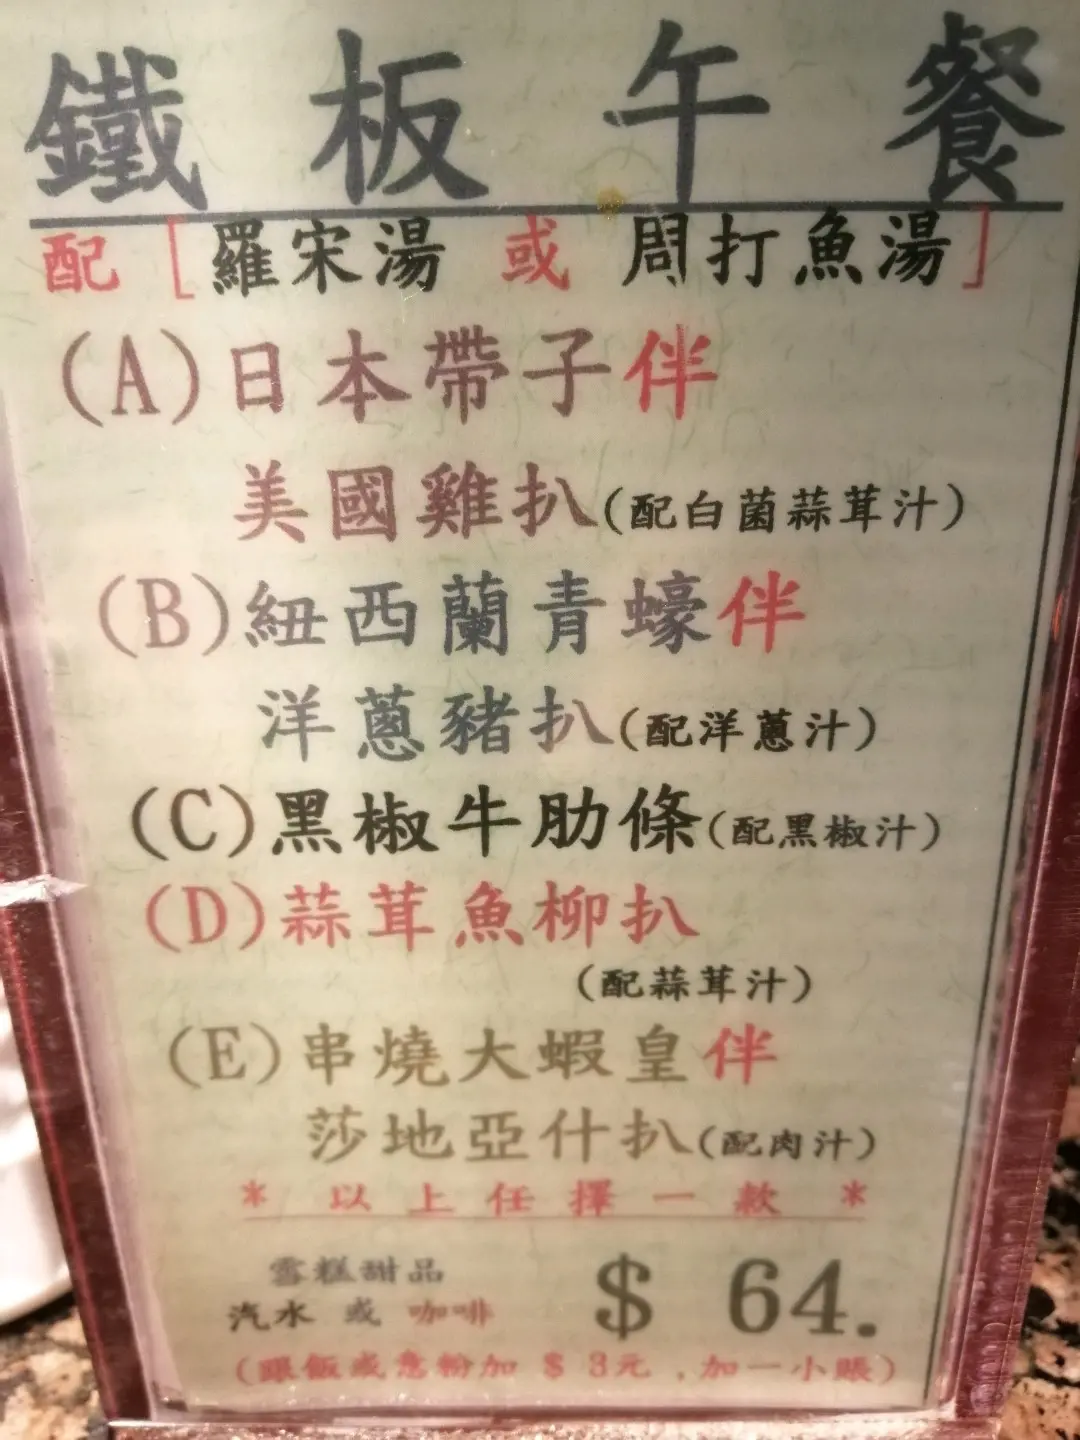 鐵板午餐
配[羅宋湯 或 周打魚湯]
(A)日本帶子伴
美國雞扒(配白菌蒜茸汁)
(B)紐西蘭青蠔伴
洋蔥豬扒(配洋蔥汁)
(C)黑椒牛肋條(配黑椒汁)
(D)蒜茸魚柳扒
(配蒜茸汁)
(E)串燒大蝦皇伴
莎地亞什扒(配肉汁)
* 以上任擇一款 *
雪糕甜品
汽水 或 咖啡
$ 64.
(跟飯或意粉加 $ 3元 ,加一小賬)